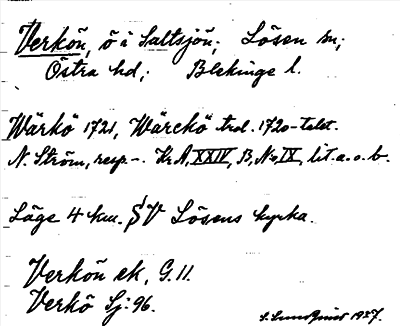 Verkön, ö i Saltsjön; Lösen sn;
Östra hd; Blekinge l.
Wärkö 1721, Wärckö trol. 1720-talet.
N. Ström, resp -. Kr. A, XXIV, B, No IX, lit. a. o. b.
Läge 4 km. SV Lösens kyrka.
Verkön ek, G. 11.
Verkö Sj: 96.
S. Lundquist 1927.